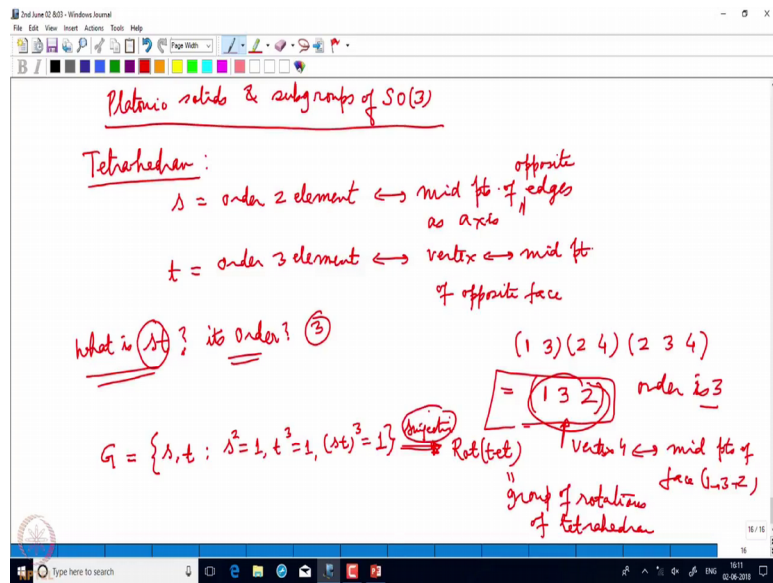 2nd June 02 &03 - Windows Journal
File Edit View Insert Actions Tools Help
Page Width
B I
Platonic solids & subgroups of SO(3)
Tetrahedron :
s = order 2 element ↔ mid pts. of opposite edges
as axis
t = order 3 element ↔ vertex ↔ mid pt.
of opposite face
What is (st) ? its order? ③
(1 3)(2 4)(2 3 4)
= (1 3 2) order is 3
G = {s,t : s²=1, t³=1, (st)³=1} surjective Rot(tet)
vertex 4 ↔ mid pts of
face (1→3→2)
"
group of rotations
of tetrahedron
16 / 16
16
NPTEL
Type here to search
ENG
16:11
02-06-2018